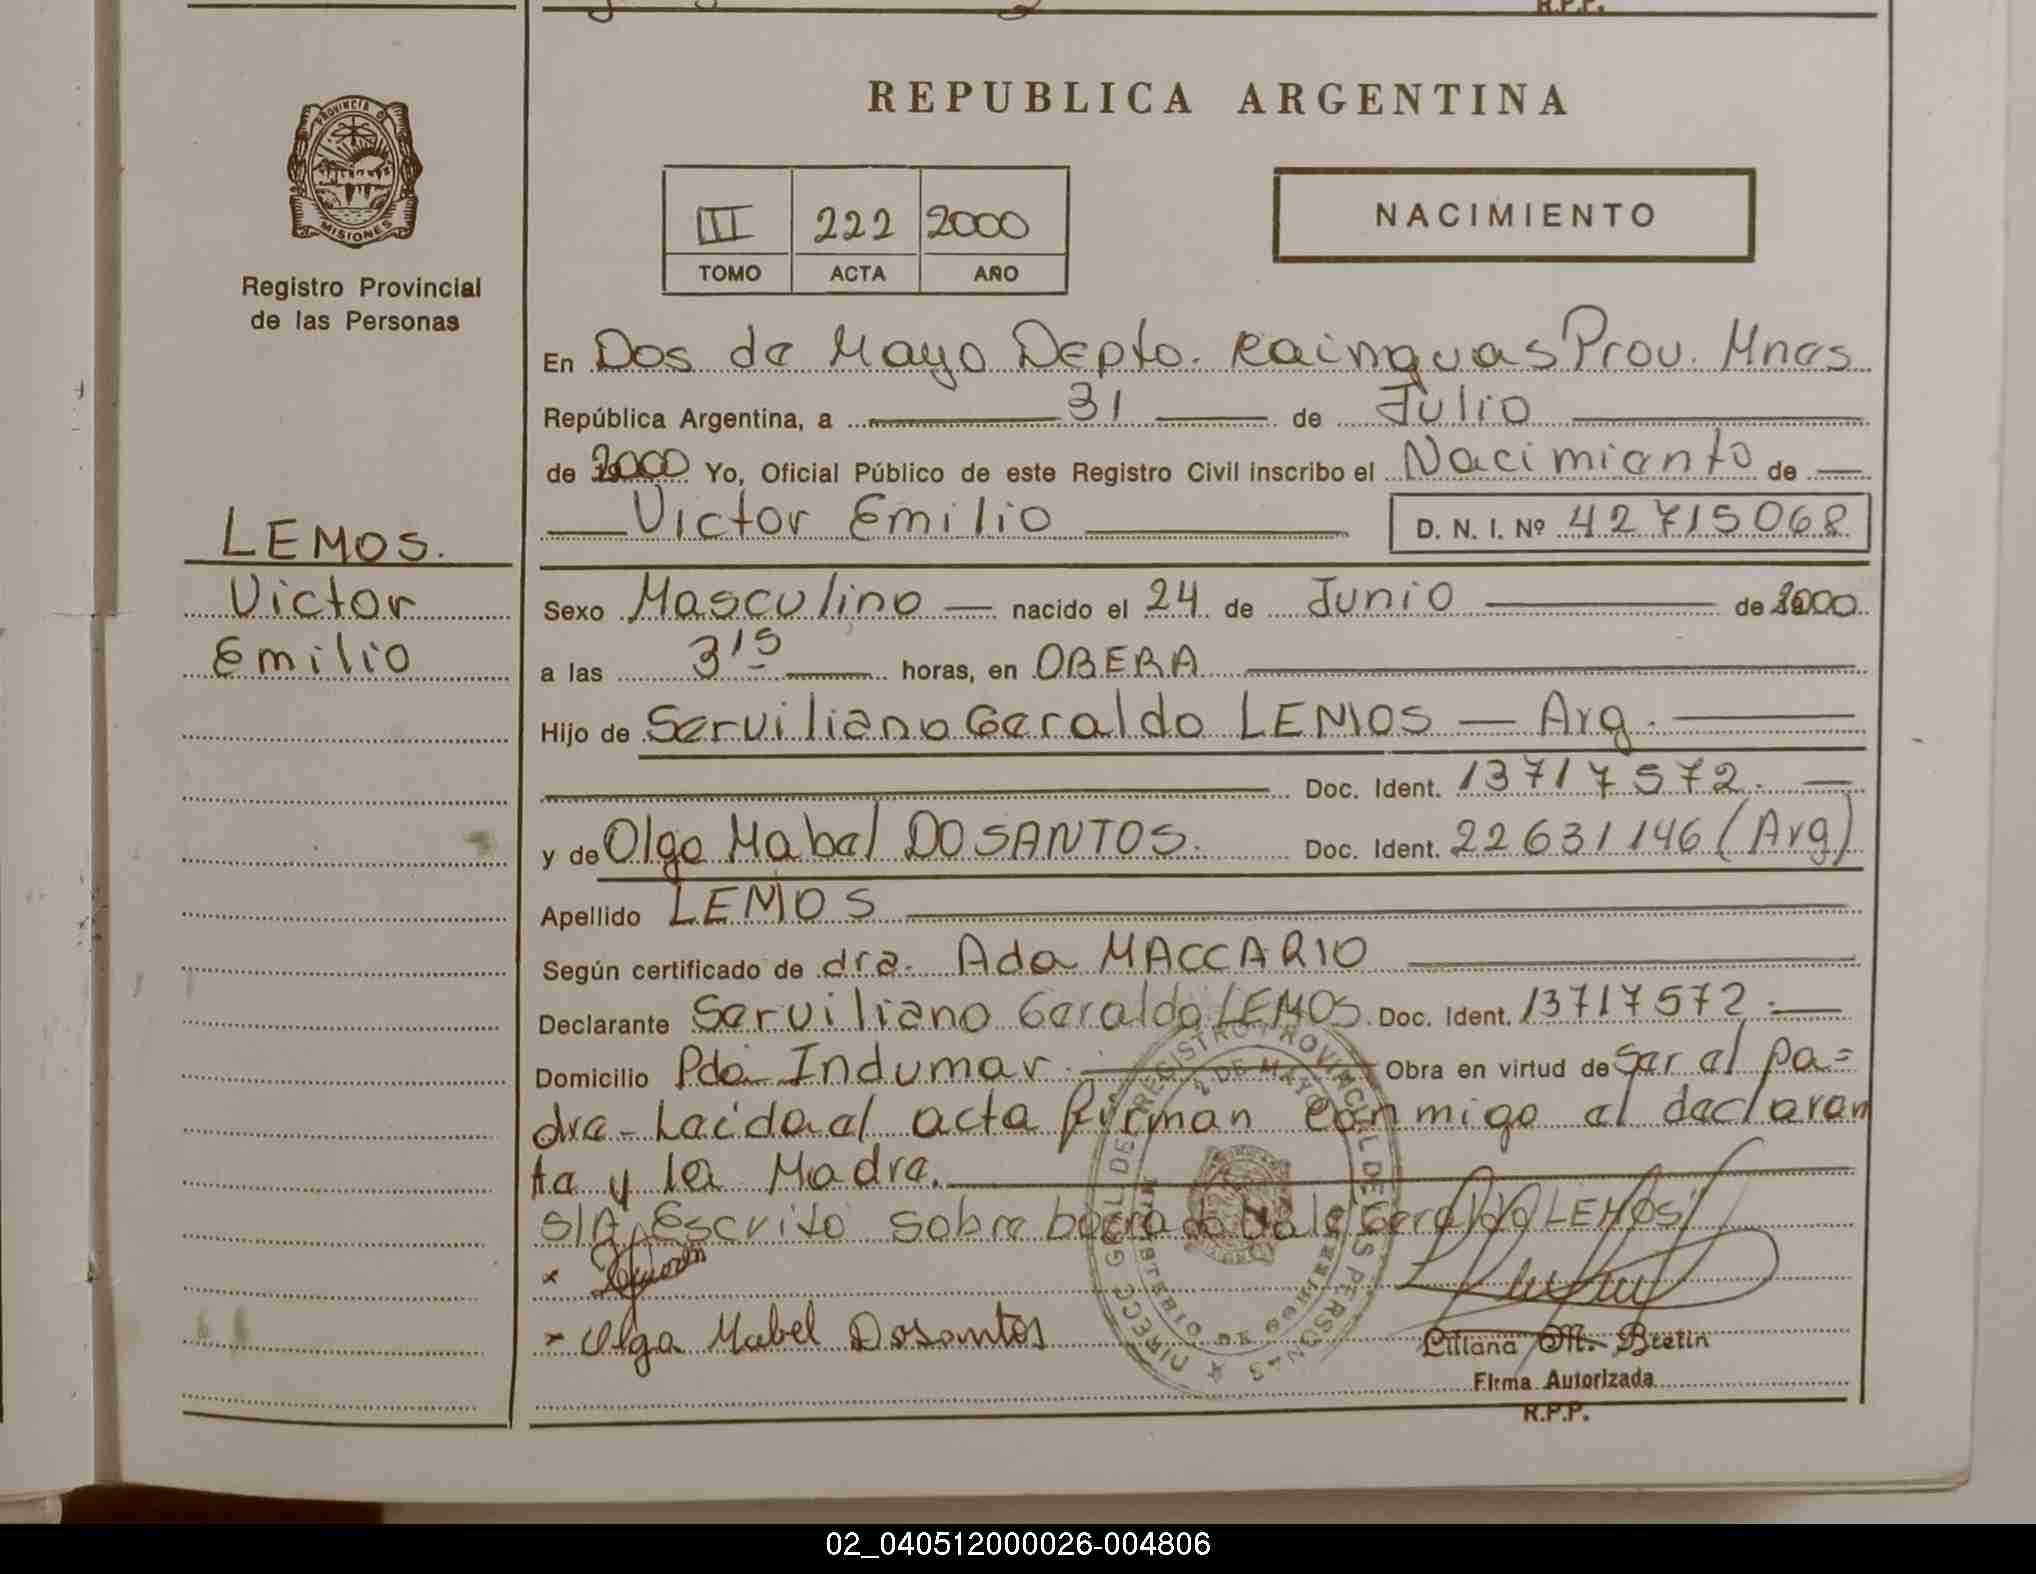 R.P.P.
REPUBLICA ARGENTINA
PROVINCIA D
MISIONES
Registro Provincial
de las Personas
III 222 2000
TOMO ACTA AÑO
NACIMIENTO
En Dos de Mayo Depto. Kainguas Prov. Mnes
República Argentina, a 31 de Julio
de 2000 Yo, Oficial Público de este Registro Civil inscribo el Nacimiento de
Victor Emilio D. N. I. Nº 42715068
LEMOS.
Victor
Emilio
Sexo Masculino nacido el 24 de Junio de 2000
a las 3 15 horas, en OBERA
Hijo de Serviliano Geraldo LEMOS — Arg.
Doc. Ident. 13717572.
y de Olga Mabel DOSANTOS. Doc. Ident. 22631146 (Arg)
Apellido LEMOS
Según certificado de dra. Ada MACCARIO
Declarante Serviliano Geraldo LEMOS. Doc. Ident. 13717572.
Domicilio Pdo Indumar. Obra en virtud de ser el pa=
dre - Leida el acta firman conmigo el declaran
te y la Madre.
S/A Escrito sobre borrado Vale "Geraldo LEMOS"
x
x Olga Mabel Dosantos
DIRECC GRAL DE REGISTRO PROVINCIAL DE LAS PERSONAS
2 DE MAYO
MINISTERIO DE GOBIERNO
Liliana M. Bretin
Firma Autorizada
R.P.P.
02_040512000026-004806